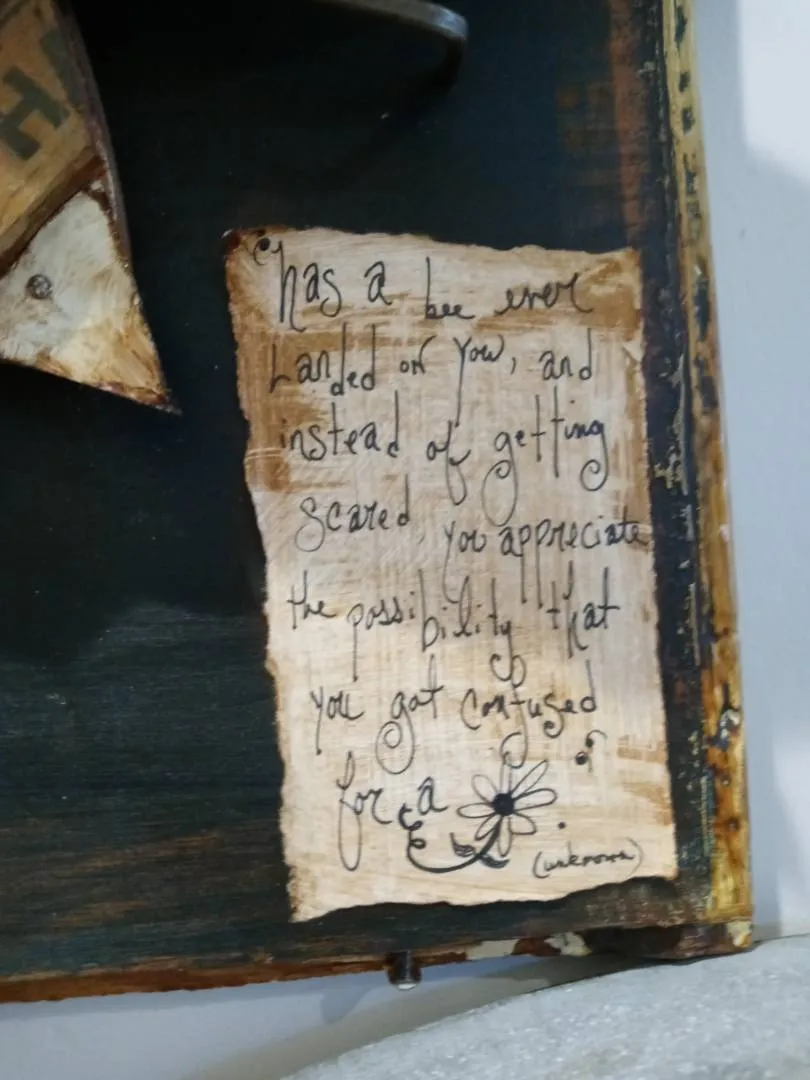 H
"has a bee ever
Landed on you, and
instead of getting
scared, you appreciate
the possibility that
you got confused
for a
(unknown)